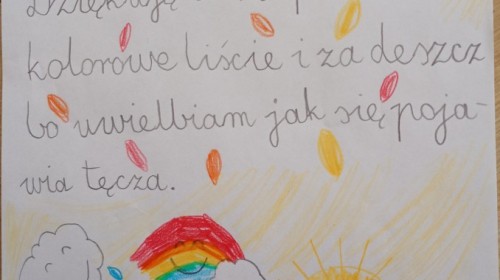 kolorowe liście i za deszcz
bo uwielbiam jak się poja-
wia tęcza.